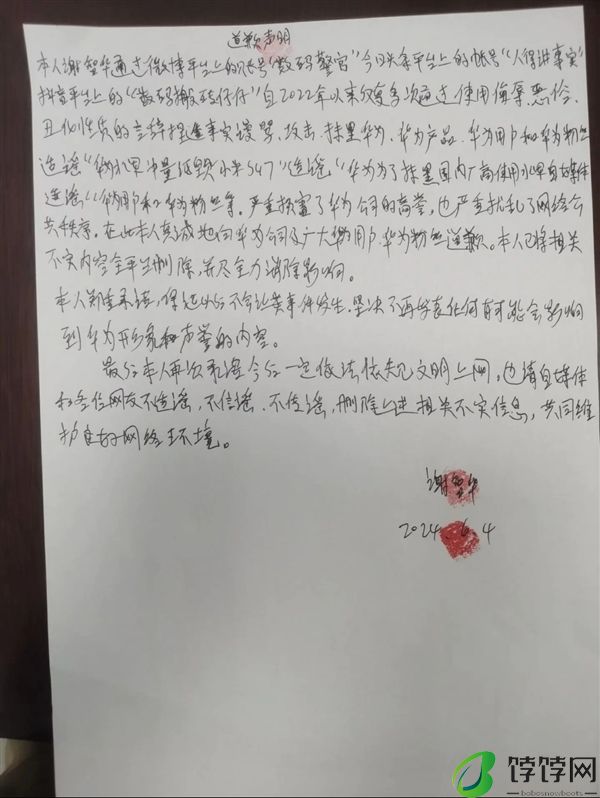 道歉声明
本人谢智华通过微博平台上的帐号“数码警官”今日头条平台上的帐号“人得讲事实”
抖音平台上的“数码搬砖仔仔”自2022年以来反复多次通过使用侮辱恶俗、
丑化性质的言辞捏造事实谩骂、攻击、抹黑华为、华为产品、华为用户和华为粉丝
造谣“华为水军冲量诋毁小米SU7”造谣“华为为了抹黑国内厂商使用水军自媒体
造谣“华为用户和华为粉丝等。严重损害了华为公司的商誉，也严重扰乱了网络公
共秩序。在此本人真诚地向华为公司及广大华为用户、华为粉丝道歉。本人已将相关
不实内容全平台删除，并尽全力消除影响。
本人郑重承诺，保证以后不会让类事件发生。坚决不再发表任何有可能会影响
到华为形象和声誉的内容。
最后本人再次承诺今后一定依法依规文明上网，也请自媒体
和各位网友不造谣，不信谣、不传谣，删除上述相关不实信息，共同维
护良好网络环境。
谢智华
2024.6.4
饽饽网
bobosnowboots.com